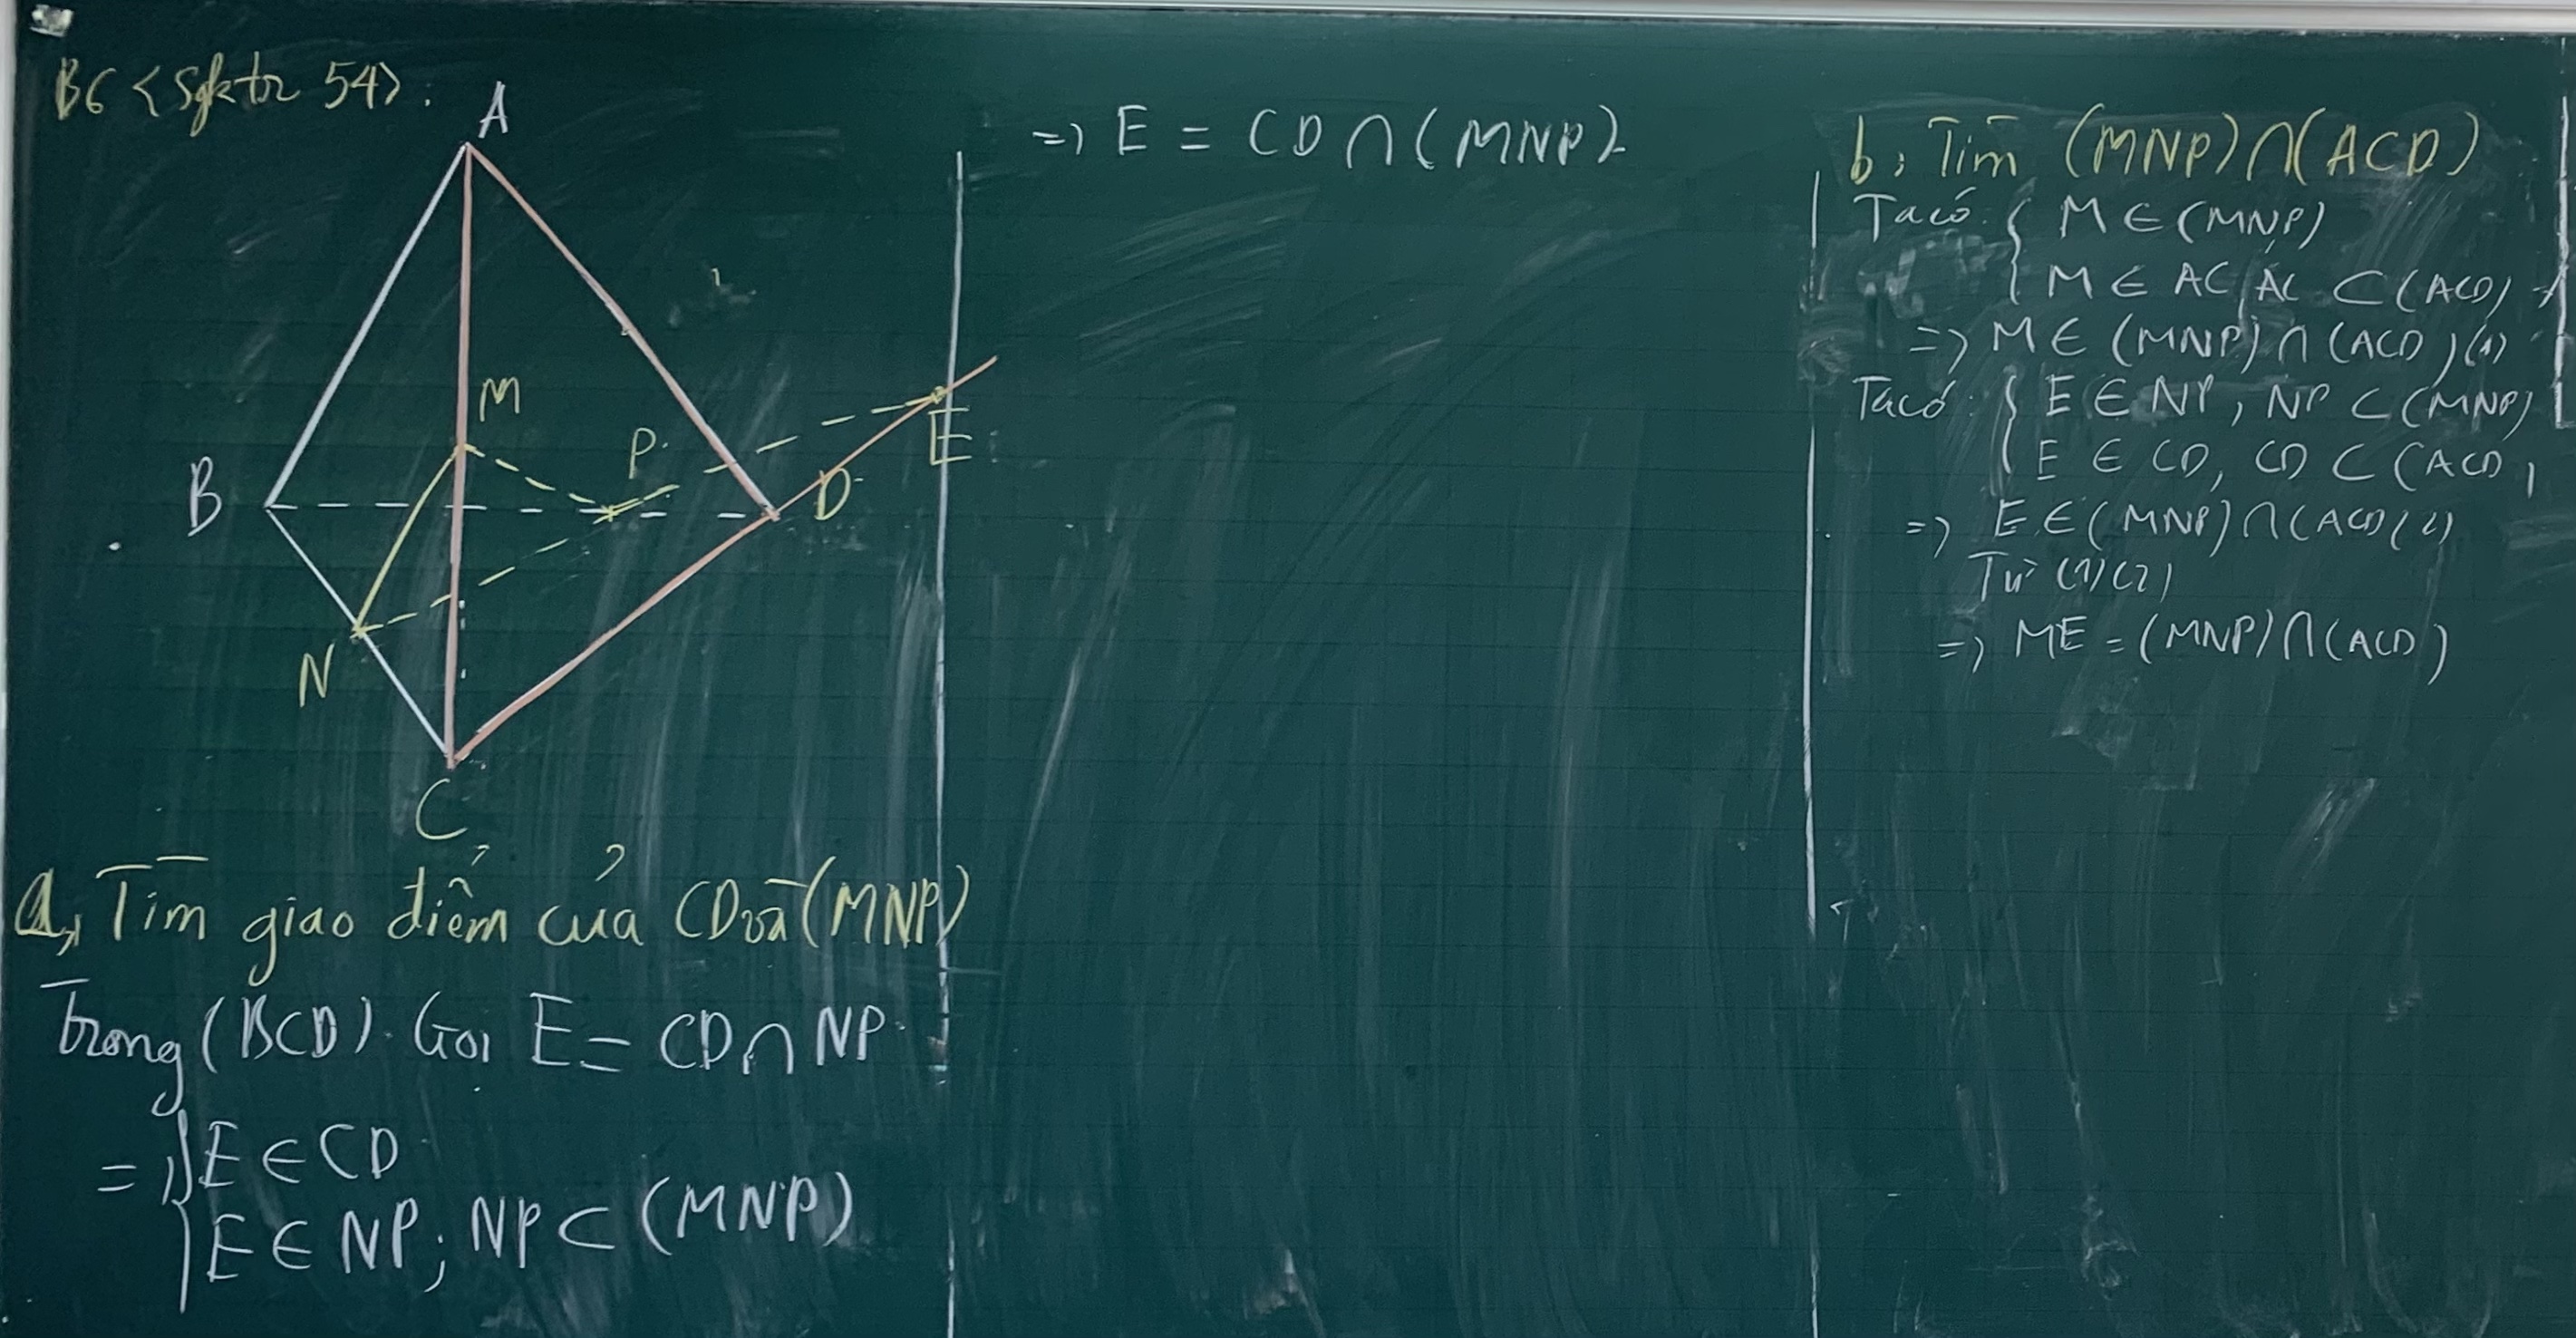 B6 <Sgk tr 54>.
A
M
P
B
D
E
N
C
a, Tìm giao điểm của CD và (MNP)
Trong (BCD). Gọi E = CD ∩ NP
=> { E ∈ CD
E ∈ NP; NP ⊂ (MNP)
=> E = CD ∩ (MNP).
b, Tìm (MNP) ∩ (ACD)
Ta có: { M ∈ (MNP)
M ∈ AC, AC ⊂ (ACD)
=> M ∈ (MNP) ∩ (ACD) (1)
Ta có: { E ∈ NP, NP ⊂ (MNP)
E ∈ CD, CD ⊂ (ACD)
=> E ∈ (MNP) ∩ (ACD) (2)
Từ (1) (2)
=> ME = (MNP) ∩ (ACD)